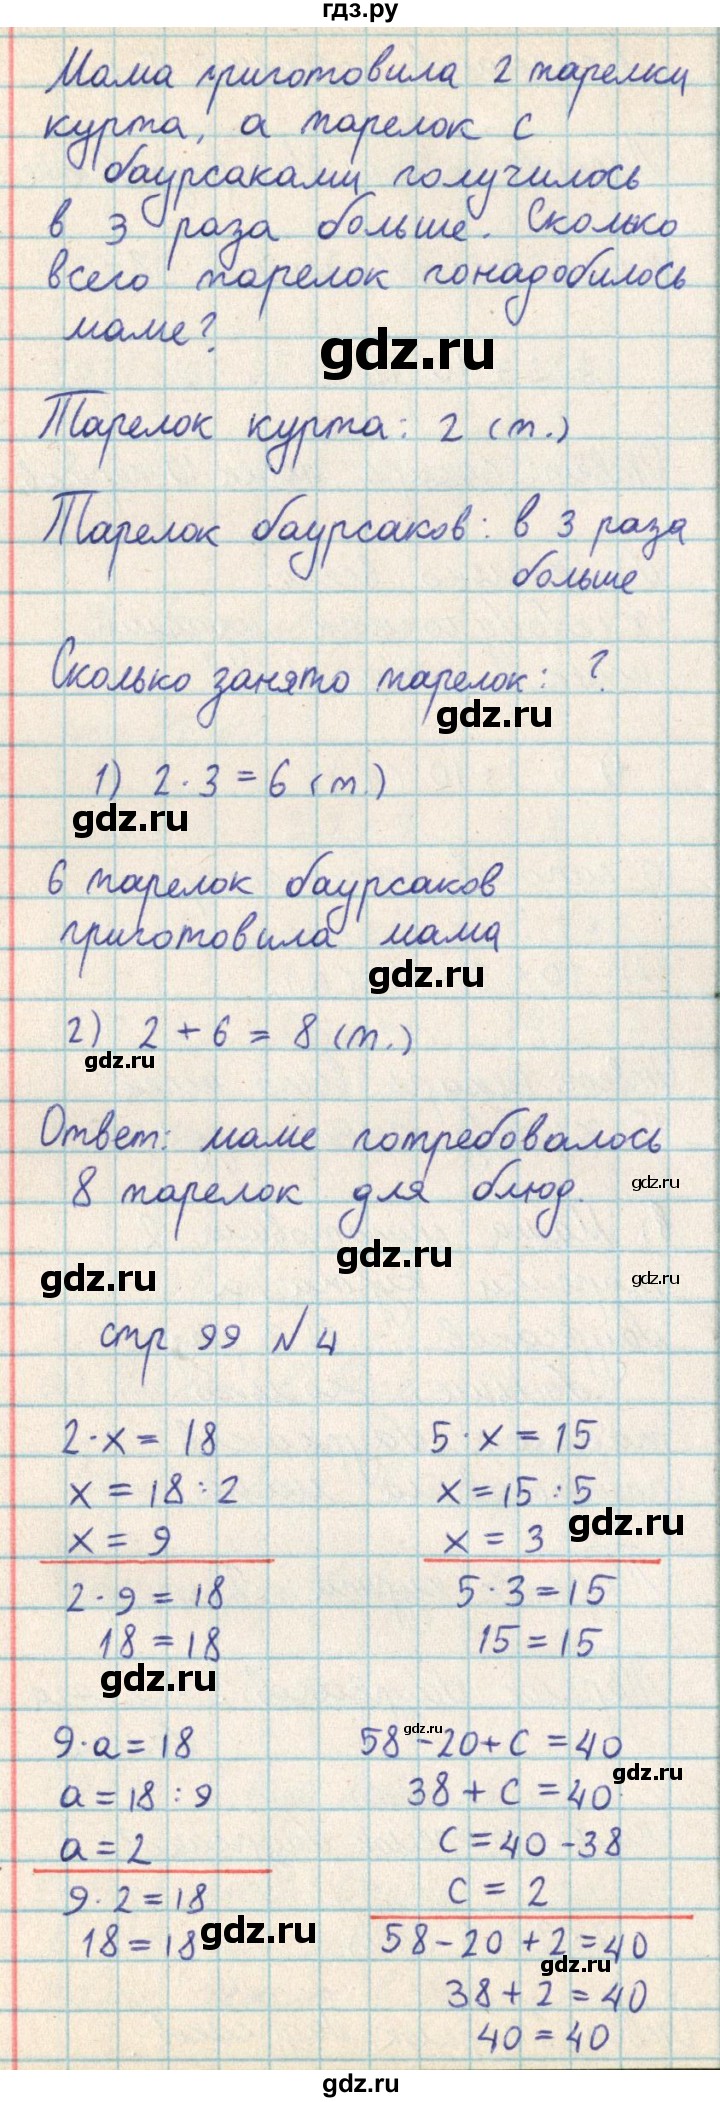 гдз.ру
Мама приготовила 2 тарелки
курта, а тарелок с
баурсаками получилось
в 3 раза больше. Сколько
всего тарелок понадобилось
маме?
gdz.ru
Тарелок курта: 2 (т.)
Тарелок баурсаков: в 3 раза
больше
Сколько занято тарелок: ?
gdz.ru
1) 2 · 3 = 6 (т.)
gdz.ru
6 тарелок баурсаков
приготовила мама
gdz.ru
2) 2 + 6 = 8 (т.)
gdz.ru
Ответ: маме потребовалось
8 тарелок для блюд.
gdz.ru
gdz.ru
gdz.ru
gdz.ru
стр 99 №4
2 · x = 18
x = 18 : 2
x = 9
2 · 9 = 18
18 = 18
gdz.ru
5 · x = 15
x = 15 : 5
x = 3
gdz.ru
5 · 3 = 15
15 = 15
9 · a = 18
a = 18 : 9
a = 2
9 · 2 = 18
18 = 18
gdz.ru
gdz.ru
58 - 20 + c = 40
gdz.ru
38 + c = 40
c = 40 - 38
c = 2
58 - 20 + 2 = 40
gdz.ru
38 + 2 = 40
40 = 40
gdz.ru